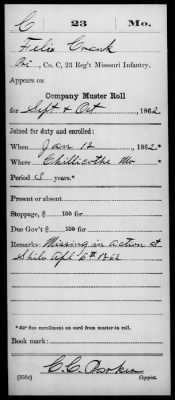 C 23 Mo.
Felix Crank
Pvt., Co. C, 23 Reg't Missouri Infantry.
Appears on
Company Muster Roll
for Sept & Oct, 1862
Joined for duty and enrolled:
When Jan 12, 1862*
Where Chillicothe Mo
Period 3 years.*
Present or absent
Stoppage, $ 100 for
Due Gov't $ 100 for
Remarks: Missing in action at
Shilo Apl 6th 1862
*See enrollment on card from muster-in roll.
Book mark:
Copyist.